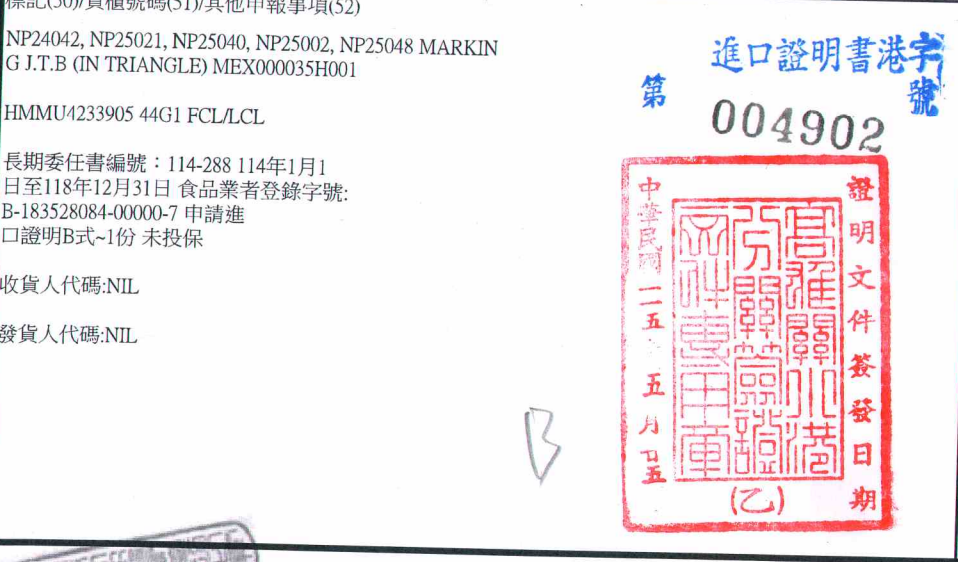 標記(50)/貨櫃號碼(51)/其他申報事項(52)
NP24042, NP25021, NP25040, NP25002, NP25048 MARKIN
G J.T.B (IN TRIANGLE) MEX000035H001
HMMU4233905 44G1 FCL/LCL
長期委任書編號：114-288 114年1月1
日至118年12月31日 食品業者登錄字號:
B-183528084-00000-7 申請進
口證明B式~1份 未投保
收貨人代碼:NIL
發貨人代碼:NIL
進口證明書港字
第 號
004902
證明文件簽發日期
高雄關小港
分關簽證
文件專用章
(乙)
中華民國 一一五 五月廿五
B